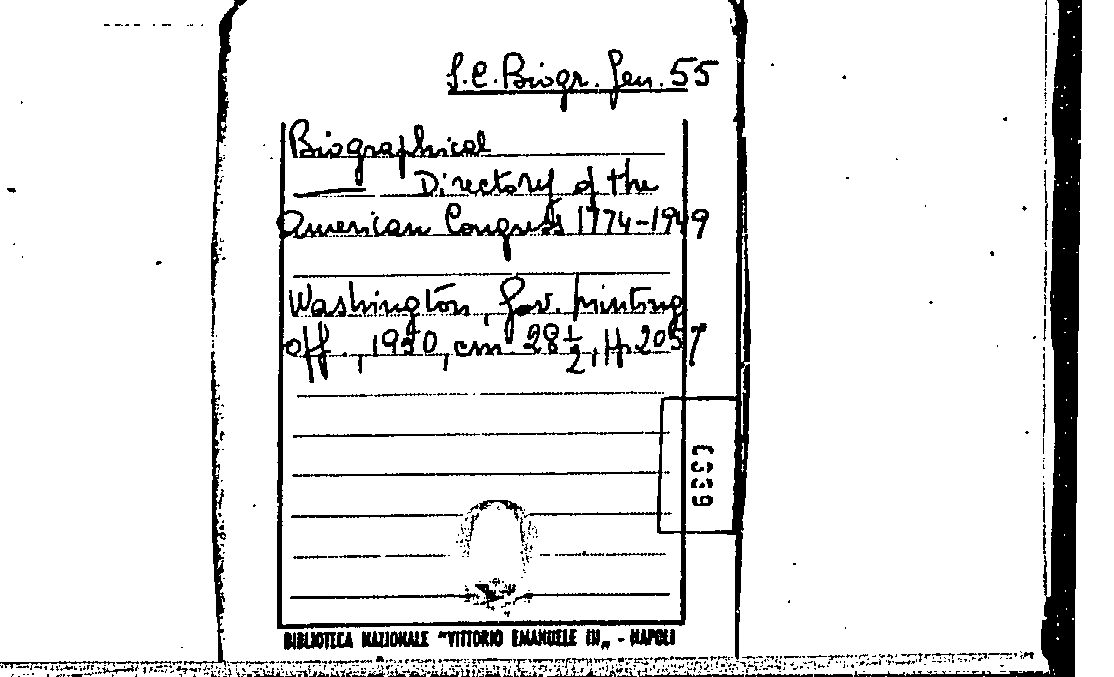 S.C. Biogr. Gen. 55
Biographical
Directory of the
American Congress 1774-1949
Washington, Gov. printing
off., 1950, cm. 28½, pp. 2057
6339
BIBLIOTECA NAZIONALE "VITTORIO EMANUELE III„ - NAPOLI